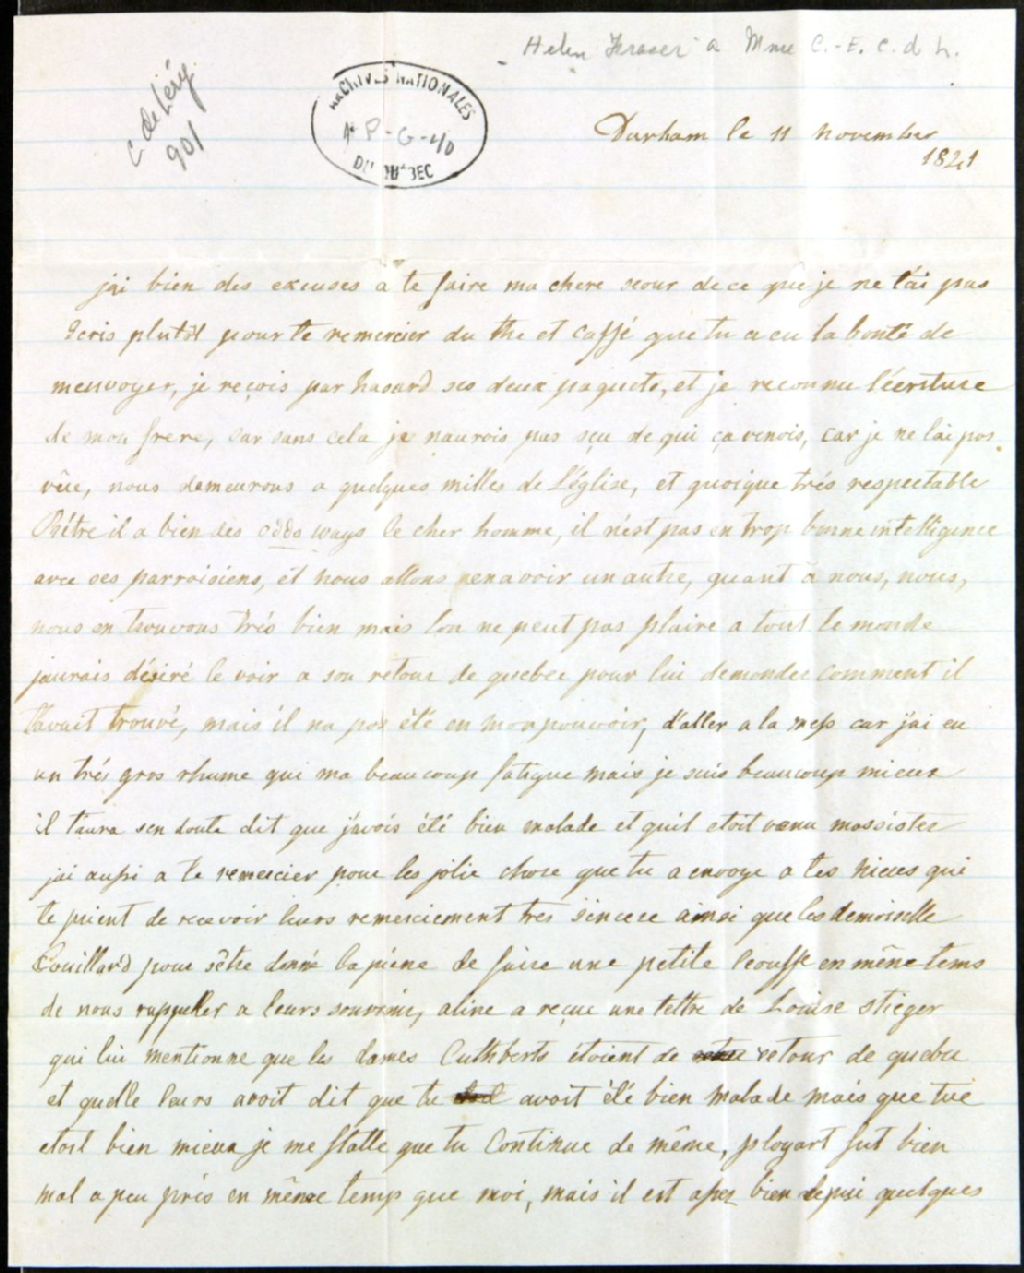 Helen Fraser a Mme C.-E. C. d L.
C de Léry
901
ARCHIVES NATIONALES
AP-G-40
DU QUÉBEC
Durham le 11 november
1841
jai bien des excuses a te faire ma chere seour de ce que je ne t'ai pas
ecris plutôt pour te remercier du the et caffé que tu a eu la bonté de
menvoyer, je reçois par hasard ses deux paquets, et je reconnu l'écriture
de mon frere, car sans cela je naurois pas sçu de qui ça venois, car je ne lai pas
vûe, nous demeurons a quelques milles de L'église, et quoique trés respectable
Prêtre il a bien des odds ways le cher homme, il n'est pas en trop bonne intelligence
avec ses parroisiens, et nous allons en avoir un autre, quant a nous, nous,
nous en trouvons trés bien mais lon ne peut pas plaire a tout le monde
jaurais désiré le voir a son retour de quebec pour lui demander comment il
t'avait trouvé, mais il na pas été en mon pouvoir, d'aller a la mess car j'ai eu
un trés gros rhume qui ma beaucoup fatigue mais je suis beaucoup mieux
il t'aura sen doute dit que j'avois été bien malade et quil etoit venu massister
jai aussi a te remercier pour les jolie chose que tu a envoye a tes nieces qui
te prient de recevoir leurs remerciement tres sincere ainsi que les demoiselle
Couillard pour sêtre donné la peine de faire une petite en même tems
de nous rappeller a leurs souvenir, aline a reçue une lettre de Louise stieger
qui lui mentionne que les dames Cuthberts étoient de retour de quebec
et quelle leurs avoit dit que tu avoit été bien malade mais que tue
etoit bien mieux je me flatte que tu Continue de même, ployart fut bien
mal a peu prés en même temp que moi, mais il est assez bien depui quelques